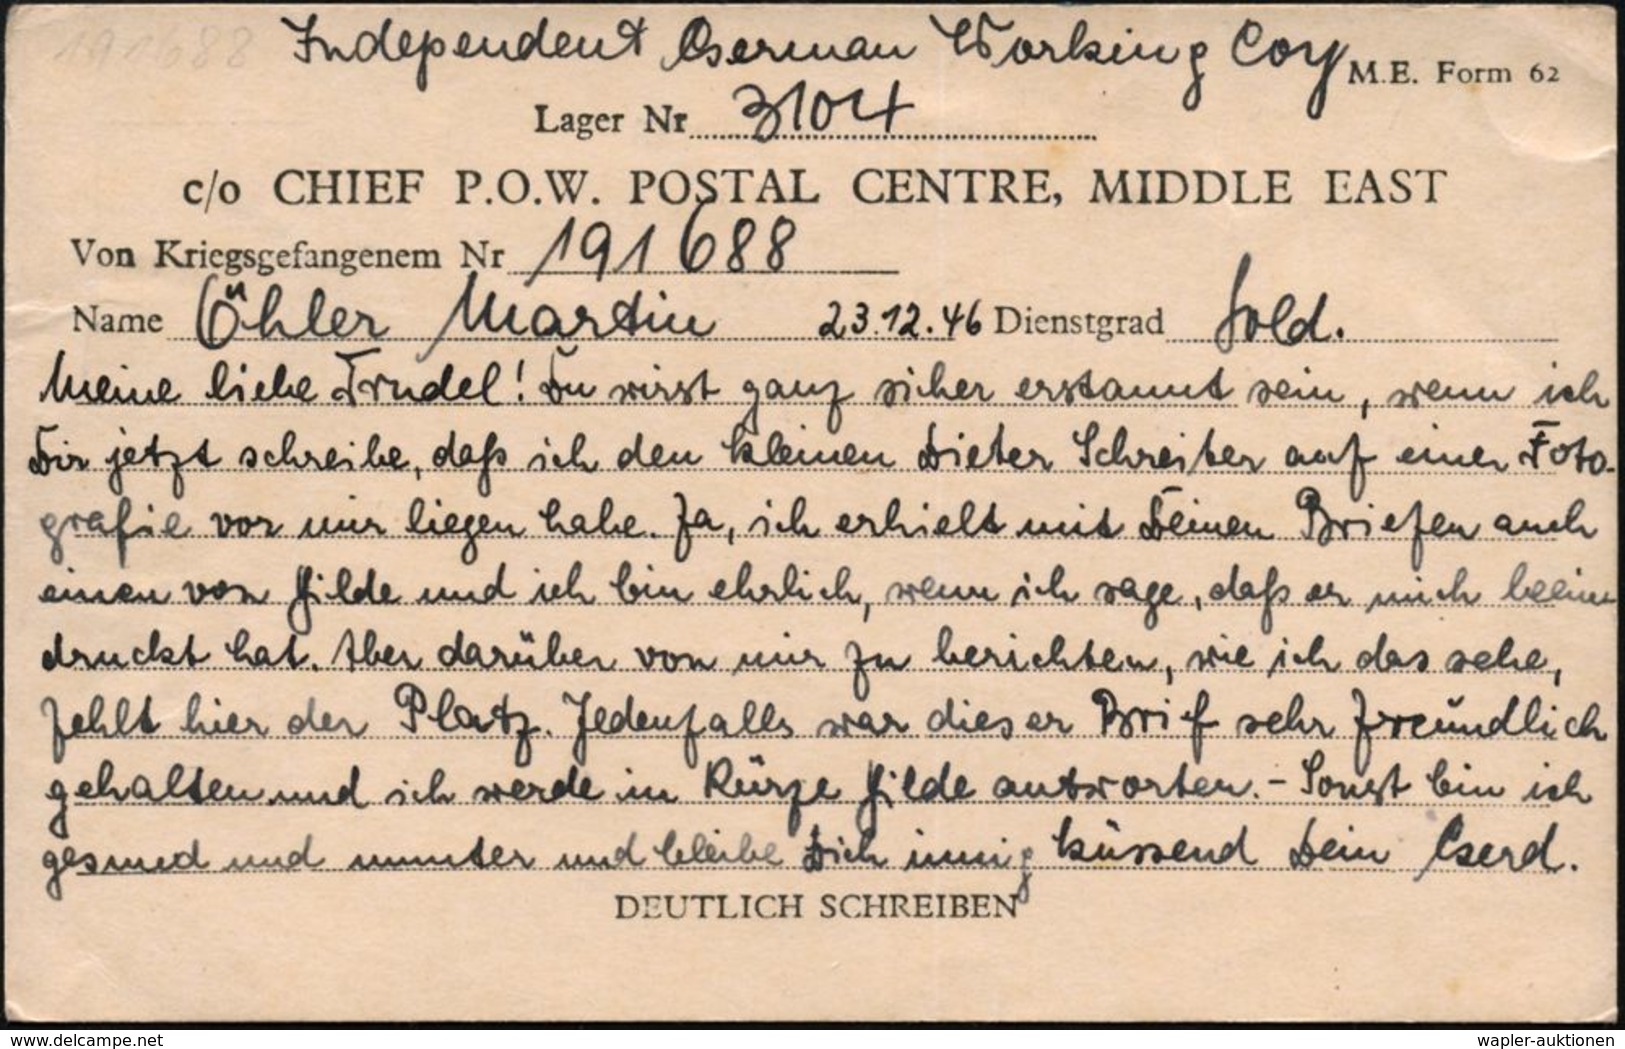 191688
Independent German Working Coy
M.E. Form 62
Lager Nr 3104
c/o CHIEF P.O.W. POSTAL CENTRE, MIDDLE EAST
Von Kriegsgefangenem Nr 191688
Name Öhler Martin 23.12.46 Dienstgrad Sold.
Meine liebe Trudel! Du wirst ganz sicher erstaunt sein, wenn ich
Dir jetzt schreibe, daß ich den kleinen Dieter Schreiber auf einer Foto-
grafie vor mir liegen habe. Ja, ich erhielt mit Deinen Briefen auch
einen von Hilde und ich bin ehrlich, wenn ich sage, daß er mich beein
druckt hat. Aber darüber von mir zu berichten, wie ich das sehe,
fehlt hier der Platz. Jedenfalls war dieser Brief sehr freundlich
gehalten und ich werde in Kürze Hilde antworten. - Sonst bin ich
gesund und munter und bleibe Dich innig küssend Dein Gerd.
DEUTLICH SCHREIBEN
www.delcampe.net
wapler-auktionen